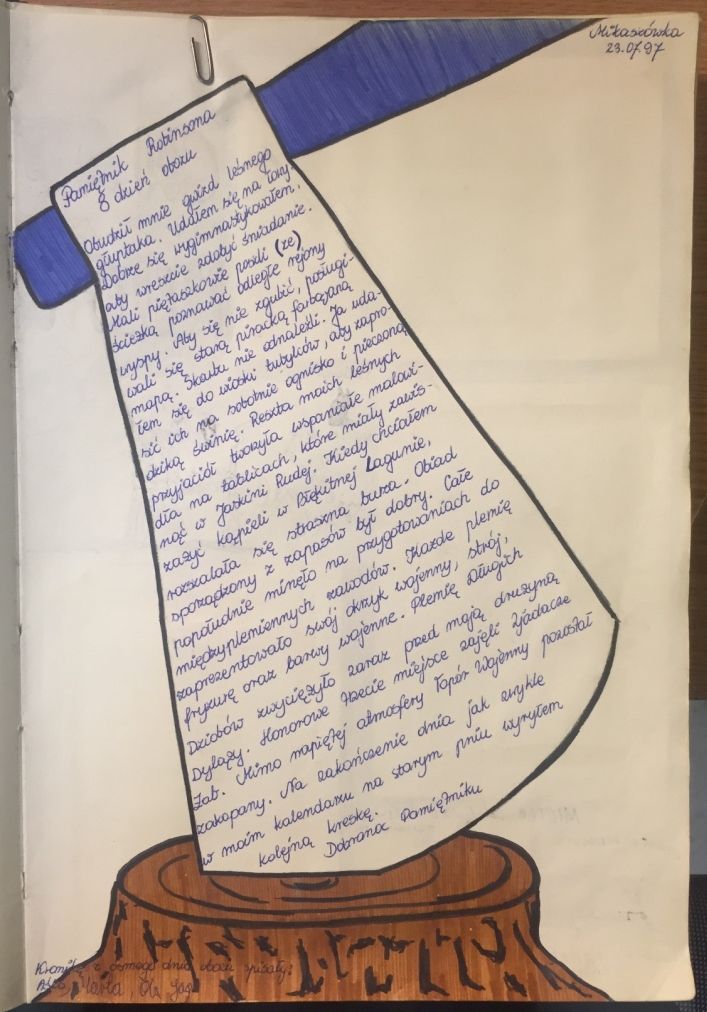 Mikaszówka
23.07.97
Pamiętnik Robinsona
8 dzień obozu
Obudził mnie gwizd leśnego
głuptaka. Udałem się na łąkę
Dobrze się wygimnastykowałem,
aby wreszcie zdobyć śniadanie.
Mali piętaszkowie poszli (ze)
ścieżką poznawać odległe rejony
wyspy. Aby się nie zgubić, posługi-
wali się starą piracką farbowaną
mapą. Skarbu nie odnaleźli. Ja uda-
łem się do wioski tubylców, aby zapro-
sić ich na sobotnie ognisko i pieczoną
dziką świnię. Reszta moich leśnych
przyjaciół tworzyła wspaniałe malowi-
dła na tablicach, które miały zawis-
nąć w Jaskini Rudej. Kiedy chciałem
zażyć kąpieli w Błękitnej Lagunie,
rozszalała się straszna burza. Obiad
sporządzony z zapasów był dobry. Całe
popołudnie minęło na przygotowaniach do
międzyplemiennych zawodów. Każde plemię
zaprezentowało swój okrzyk wojenny, strój,
fryzurę oraz barwy wojenne. Plemię Długich
Dziobów zwyciężyło zaraz przed moją drużyną
Dylązy. Honorowe trzecie miejsce zajęli Zjadacze
Żab. Mimo napiętej atmosfery Topór Wojenny pozostał
zakopany. Na zakończenie dnia jak zwykle
w moim kalendarzu na starym pniu wyryłem
kolejną kreskę.
Dobranoc Pamiętniku
Kronikę z ósmego dnia obozu spisały:
Marta, Ola